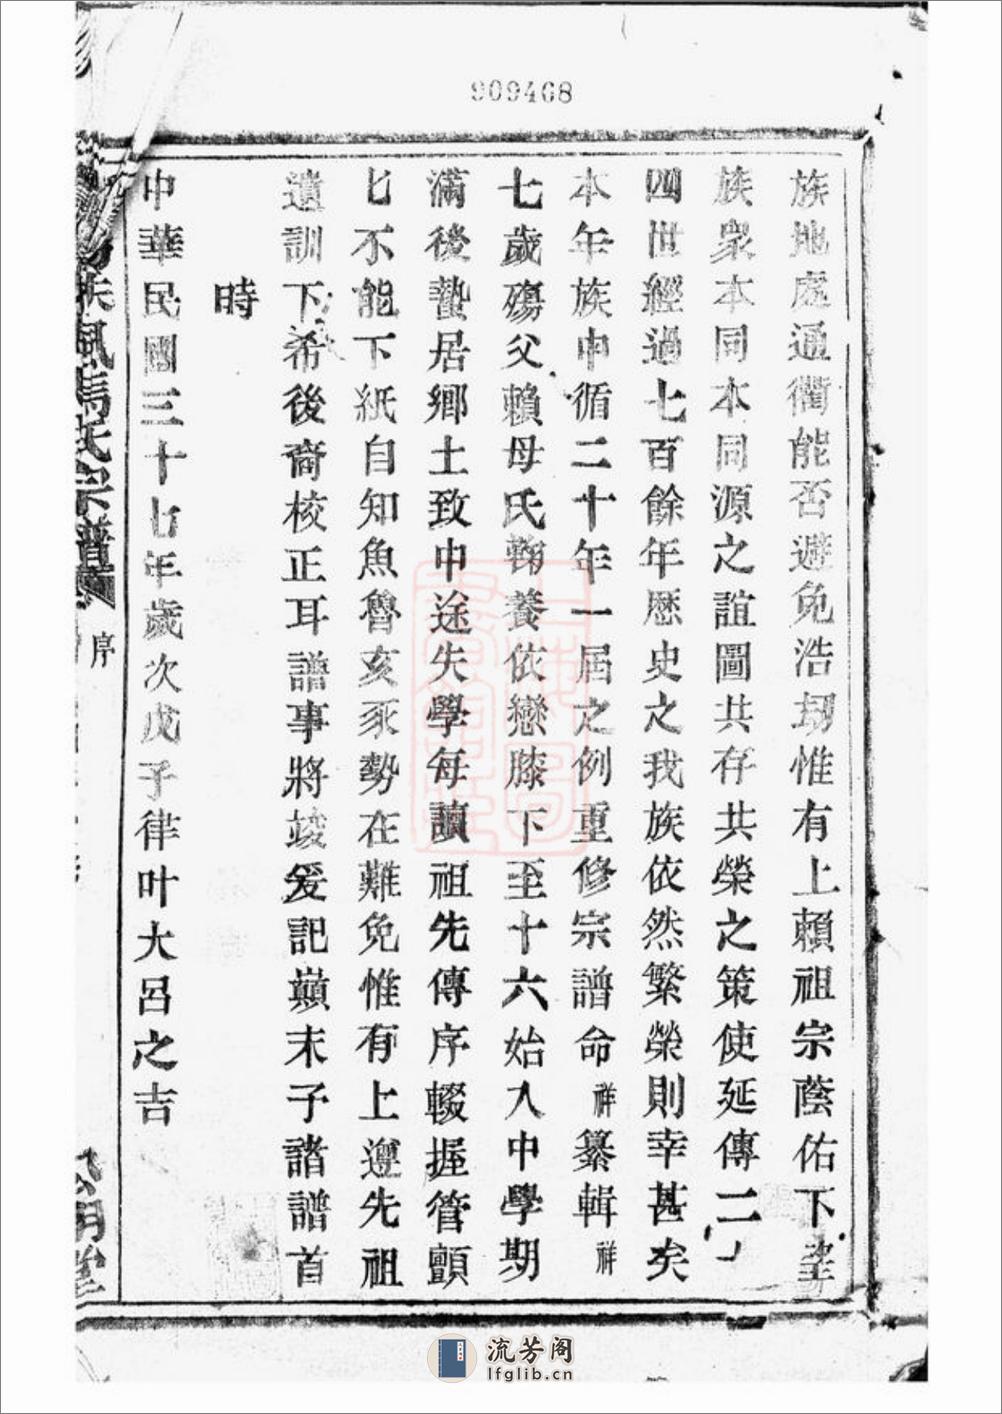 909468
族地處通衢能否避免浩刼惟有上賴祖宗蔭佑下望
族衆本同本同源之誼圖共存共榮之策使延傳二十
四世經過七百餘年歷史之我族依然繁榮則幸甚矣
本年族中循二十年一屆之例重修宗譜命祥纂輯祥
七歲殤父賴母氏鞠養依戀膝下至十六始入中學期
滿後蟄居鄉土致中途失學每讀祖先傳序輟握管顫
匕不能下紙自知魚魯亥豕勢在難免惟有上遵先祖
遺訓下希後裔校正耳譜事將竣爰記巔末子諸譜首
時
中華民國三十七年歲次戊子律叶大呂之吉
扶風馬氏宗譜
序
流芳阁
lfglib.cn